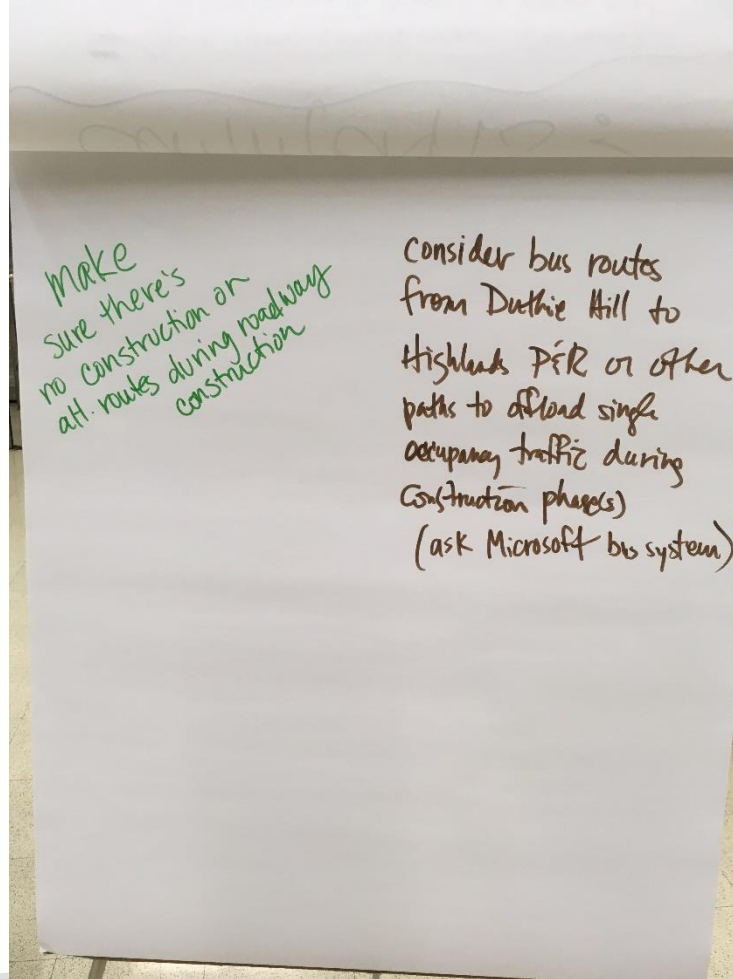 Make
sure there's
no construction on
alt. routes during roadway
construction
Consider bus routes
from Duthie Hill to
Highlands P&R or other
paths to offload single
occupancy traffic during
Construction phase(s)
(ask Microsoft bus system)